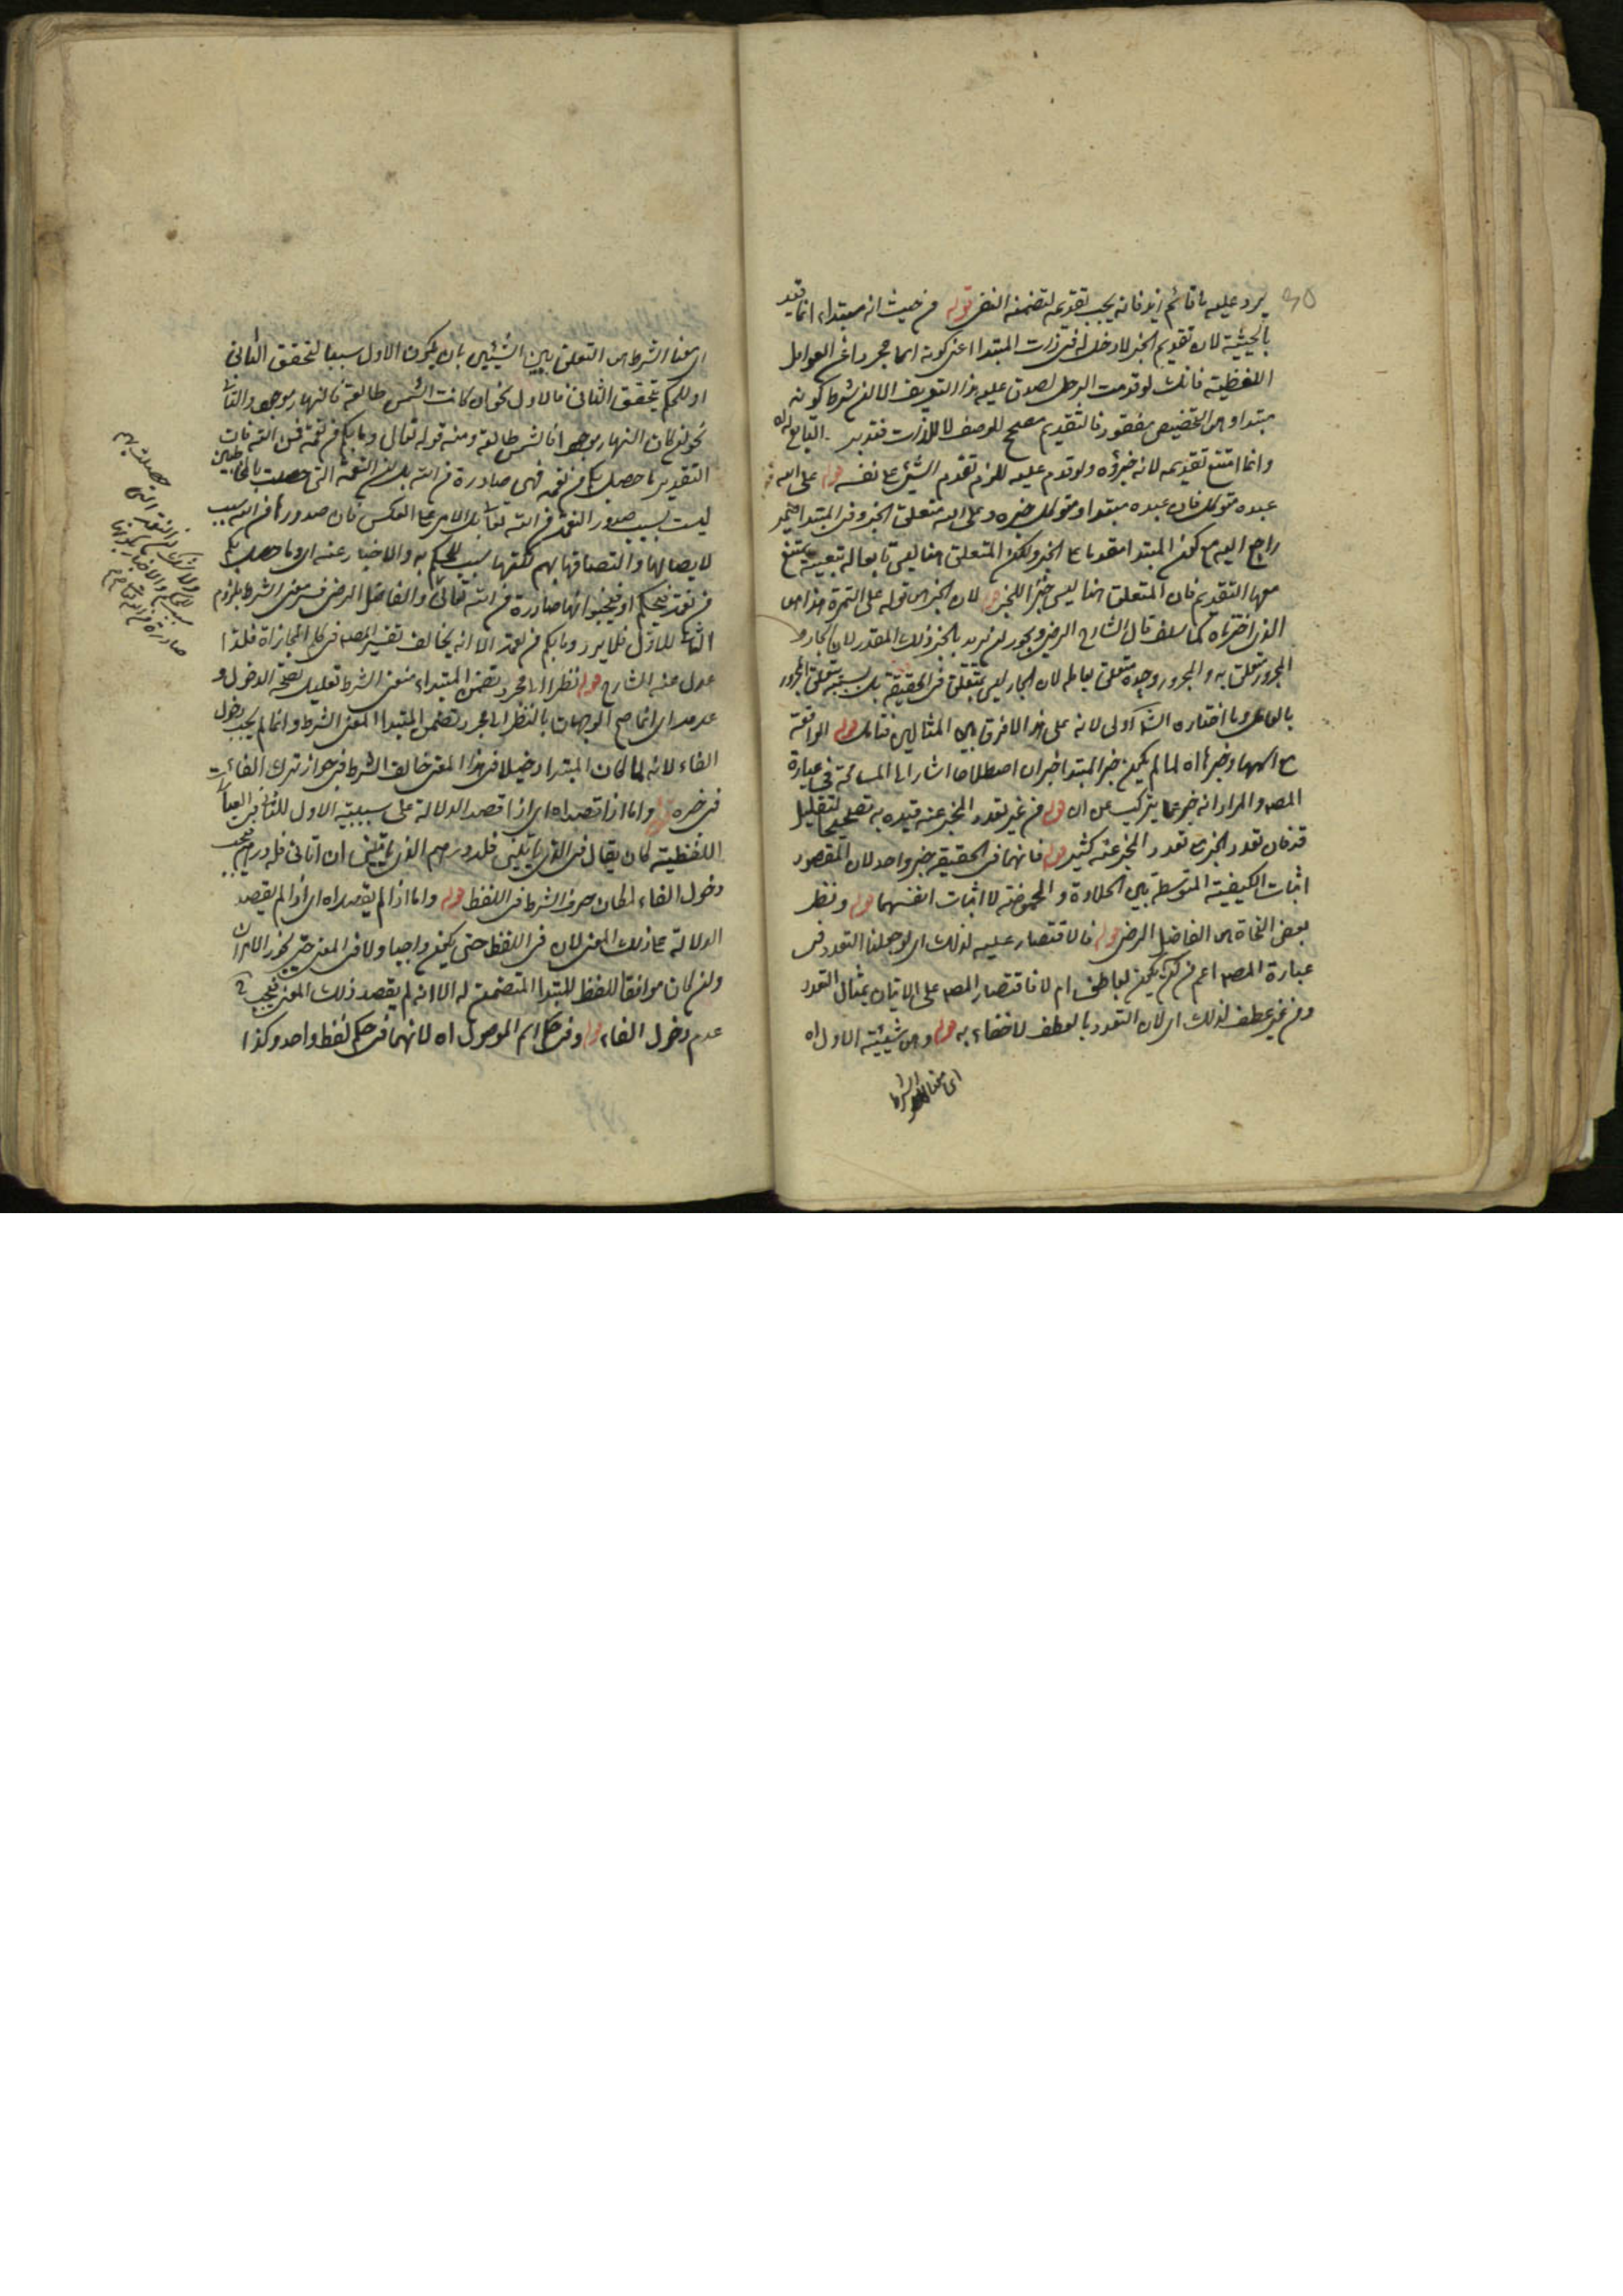 يرد عليه ما قائم زيد فانه يجب تقديمه لتضمنه النفي قوله من حيث انه مبتداء انما قيد
بالحيثية لان تقديم الخبر لا دخل له في ذات المبتدا اعني كونه اسما مجردا عن العوامل
اللفظية فانك لو قدمت الرجل لصدق عليه هذا التعريف الا ان شرط كونه
مبتدا وهي التخصيص مفقود فالتقديم مصحح للوصف لا للذات فتدبر
وانما امتنع تقديمه لانه جزؤه ولو قدم عليه للزم تقدم الشيء على نفسه قوله على الله
عبده متوكل فان عبده مبتدا ومتوكل خبره وعلى الله متعلق الخبر وفي المبتدا ضمير
راجع اليه مع كون المبتدا مقدما على الخبر ولكن المتعلق هنا ليس تابعا له تبعية يمتنع
معها التقديم فان المتعلق هنا ليس جزء الخبر قوله لان الخبر هي قوله على التمرة هذا هي
الذي اخترناه كما سلف قال الشارح الرضي ويجوز ان يريد بالخبر ذلك المقدر لان الجار و
المجرور متعلق به والمجرور وحده متعلق بعامله لان الجار ليس بمتعلق في الحقيقة بل بسببه يتعلق المجرور
بالعامل وما اختاره الشارح اولى لانه على هذا لا فرق بين المثالين فتامل قوله الواقعة
مع اسمها وخبرها اه لما لم يكن خبر المبتدا خبر ان اصطلاحا اشار الى المسامحة في عبارة
المصـ والمراد انه خبر عما يتركب من ان قوله من غير تعدد المخبر عنه قيده به تصحيحا لتقليل
قد فان تعدد الخبر مع تعدد المخبر عنه كثير قوله فانهما في الحقيقة خبر واحد لان المقصود
اثبات الكيفية المتوسطة بين الحلاوة والحموضة لا اثبات انفسهما قوله ونظر
بعض النحاة هي الفاضل الرضي قوله فالاقتصار عليه لذلك اي لو جعلنا التعدد في
عبارة المصـ اعم من ان يكون بعاطف ام لا فاقتصار المصـ على الاتيان بمثال التعدد
من غير عطف لذلك اي لان التعدد بالعطف لا خفاء به قوله وهي سببية الاول اه
اي معنا الشرط
اي معنا الشرط هي التعلق بين الشيئين بان يكون الاول سببا لتحقق الثاني
او للحكم بتحقق الثاني فالاول نحو ان كانت الشمس طالعة فالنهار موجود والثاني
نحو ان كان النهار موجودا فالشمس طالعة ومنه قوله تعالى وما بكم من نعمة فمن الله فان
التقدير ما حصل بكم من نعمة فهي صادرة من الله بل ان النعمة التي حصلت بالمخاطبين
ليست بسبب صدور النعمة من الله تعالى بل الامر على العكس فان صدورها من الله سبب
لايصالها والتصاقها بهم لكنها سبب للحكم به والاخبار عنه اي وما حصل بكم
من نعمة فيحكم او فيخبر انها صادرة من الله تعالى والفاضل الرضي فسر معنى الشرط بلزوم
الثاني للاول فلا يرد وما بكم من نعمة الا انه يخالف تفسير المصـ في كلم المجازاة فلذا
عدل عنه الشارح قوله نظرا الى مجرد تضمن المبتداء معنى الشرط تعليل لصحة الدخول و
عدمه اي انما صح الوجهان بالنظر الى مجرد تضمن المبتدا المعنى الشرط وانما لم يجب دخول
الفاء لانه لما كان المبتدا دخيلا في هذا المعنى خالف الشرط في جواز ترك الفاء
في خبره قوله واما اذا قصد اه اي اذا قصد الدلالة على سببية الاول للثاني في العبارات
اللفظية كان يقال في الذي ياتيني فله درهم الذي ياتيني ان اتاني فله درهم فيجب
دخول الفاء لمكان حرف الشرط في اللفظ قوله واما اذا لم يقصد اه اي اذا لم يقصد
الدلالة على ذلك المعنى لان في اللفظ حتى يكون واجبا ولا في المعنى حتى يجوز الامران
وان كان موافقا للفظ للمبتدا المتضمن له الا انه لم يقصد ذلك المعنى فيجب
عدم دخول الفاء قوله وفي حكم اسم الموصول اه لانهما في حكم لفظ واحد وكذا